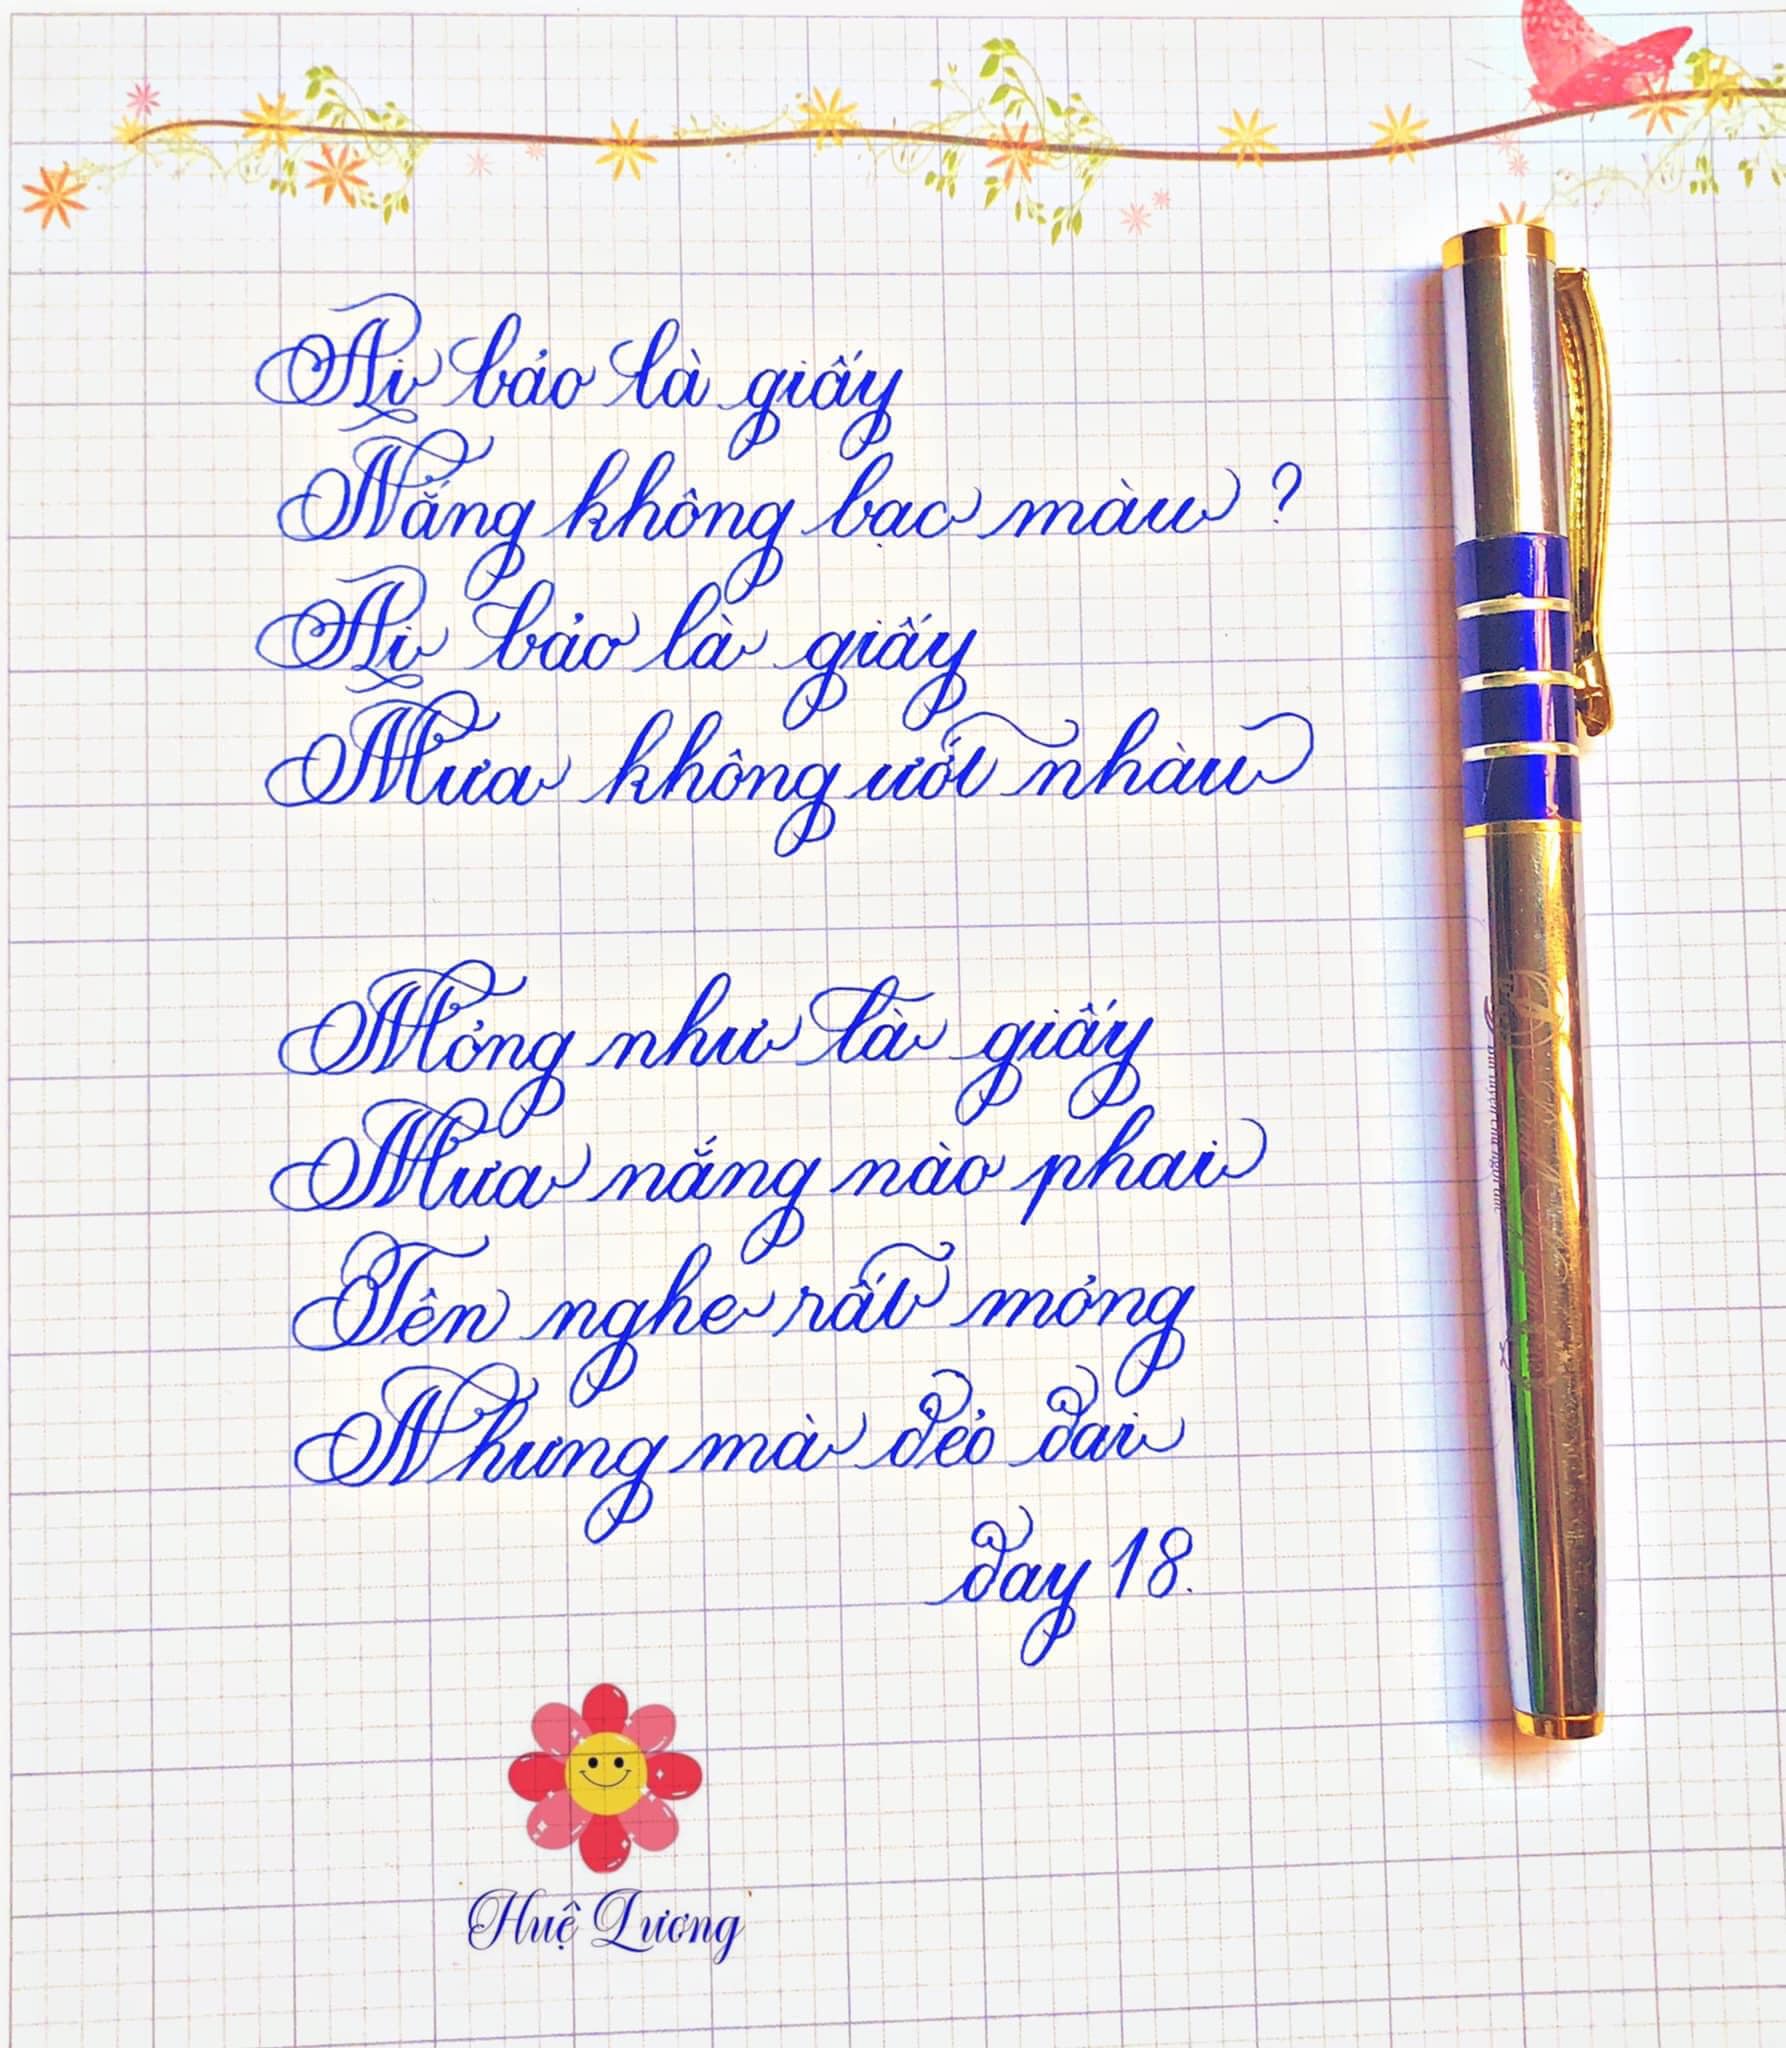 Ai bảo là giấy
Nắng không bạc màu ?
Ai bảo là giấy
Mưa không ướt nhàu
Mỏng như là giấy
Mưa nắng nào phai
Tên nghe rất mỏng
Nhưng mà dẻo dai
day 18.
Huệ Lương